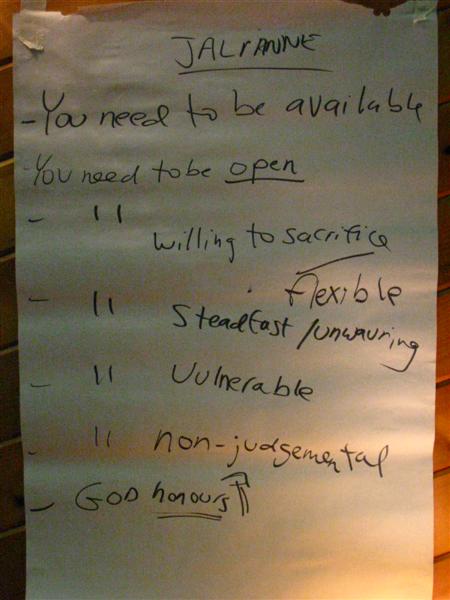 JALYANNE
- You need to be available
You need to be open
- " willing to sacrifice
flexible
- " Steadfast /unwavring
- " Vulnerable
- " non-judgemental
- GOD honours ↑